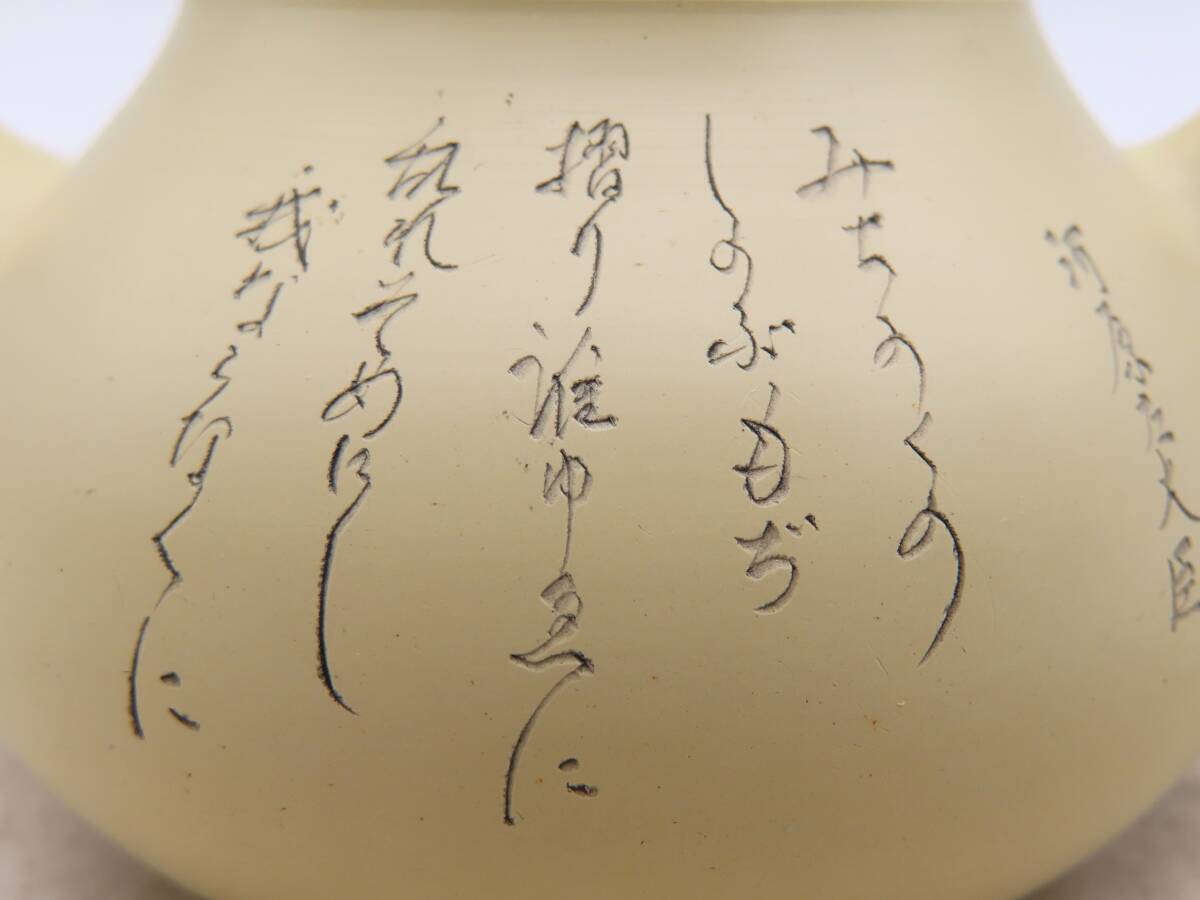 河原左大臣
みちのくの
しのぶもぢ
摺り誰ゆゑに
乱れそめにし
我ならなくに